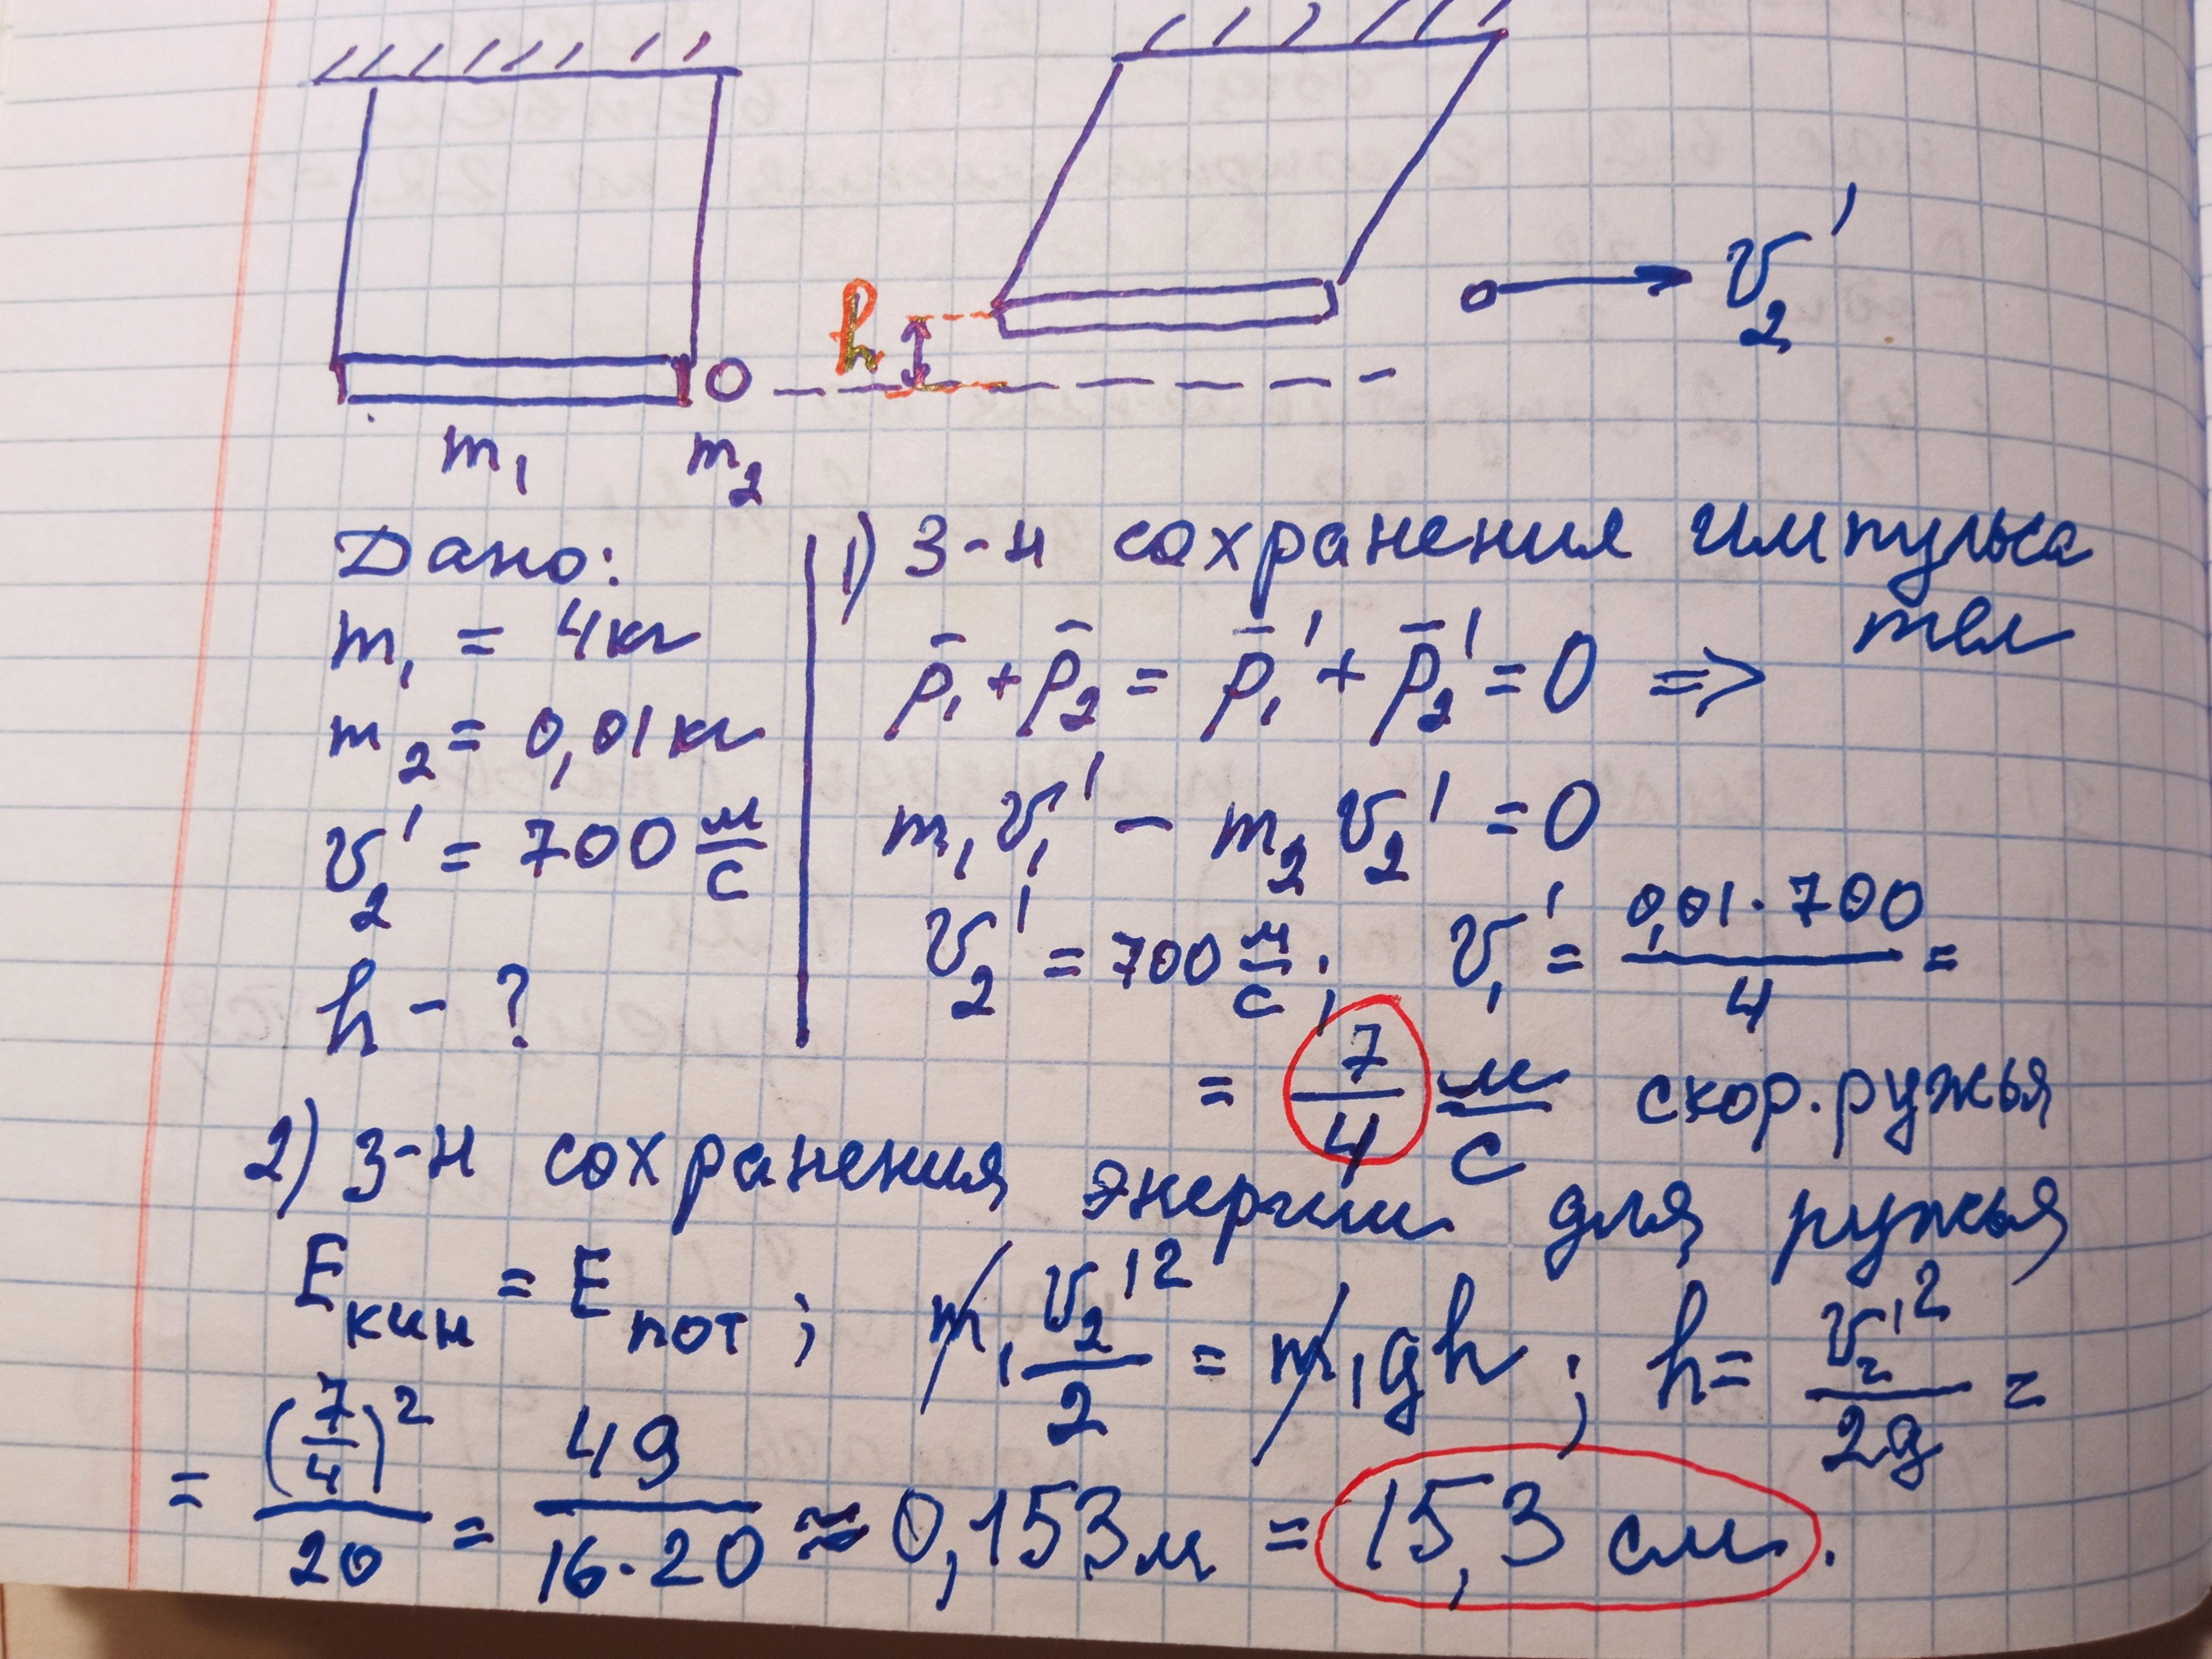 h
v₂'
m₁ m₂
Дано:
m₁ = 4кг
m₂ = 0,01кг
v₂' = 700 м/с
h - ?
1) З-н сохранения импульса
тел
p̄₁ + p̄₂ = p̄₁' + p̄₂' = 0 =>
m₁v₁' - m₂v₂' = 0
v₂' = 700 м/с; v₁' = 0,01·700/4 =
= 7/4 м/с скор. ружья
2) З-н сохранения энергии для ружья
Eкин = Eпот; m₁v₂'²/2 = m₁gh; h = v₂'²/2g =
= (7/4)²/20 = 49/16·20 ≈ 0,153м = 15,3 см.